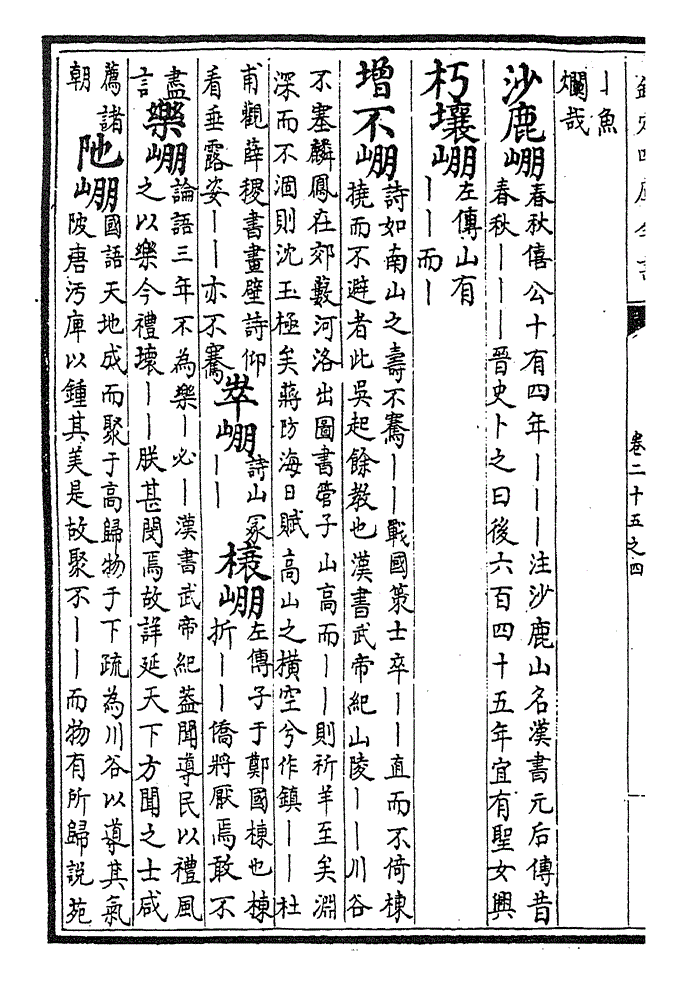 欽定四庫全書
卷二十五之四
丨魚
爛哉
沙鹿崩 春秋僖公十有四年丨丨丨注沙鹿山名漢書元后傳昔
春秋丨丨丨晉史卜之曰後六百四十五年宜有聖女興
朽壤崩 左傳山有
丨丨而丨
增不崩 詩如南山之壽不騫丨丨戰國策士卒丨丨直而不倚棟
撓而不避者此吳起餘教也漢書武帝紀山陵丨丨川谷
不塞麟鳳在郊藪河洛出圖書管子山高而丨丨則祈羊至矣淵
深而不涸則沈玉極矣蔣防海日賦高山之橫空兮作鎮丨丨杜
甫觀薛稷書畫壁詩仰
看垂露姿丨丨亦不騫
崒崩 詩山冢
丨丨
榱崩 左傳子于鄭國棟也棟
折丨丨僑將厭焉敢不
盡
言
樂崩 論語三年不為樂丨必丨漢書武帝紀蓋聞導民以禮風
之以樂今禮壞丨丨朕甚閔焉故詳延天下方聞之士咸
薦諸
朝
阤崩 國語天地成而聚于高歸物于下疏為川谷以導其氣
陂唐汚庳以鍾其美是故聚不丨丨而物有所歸說苑